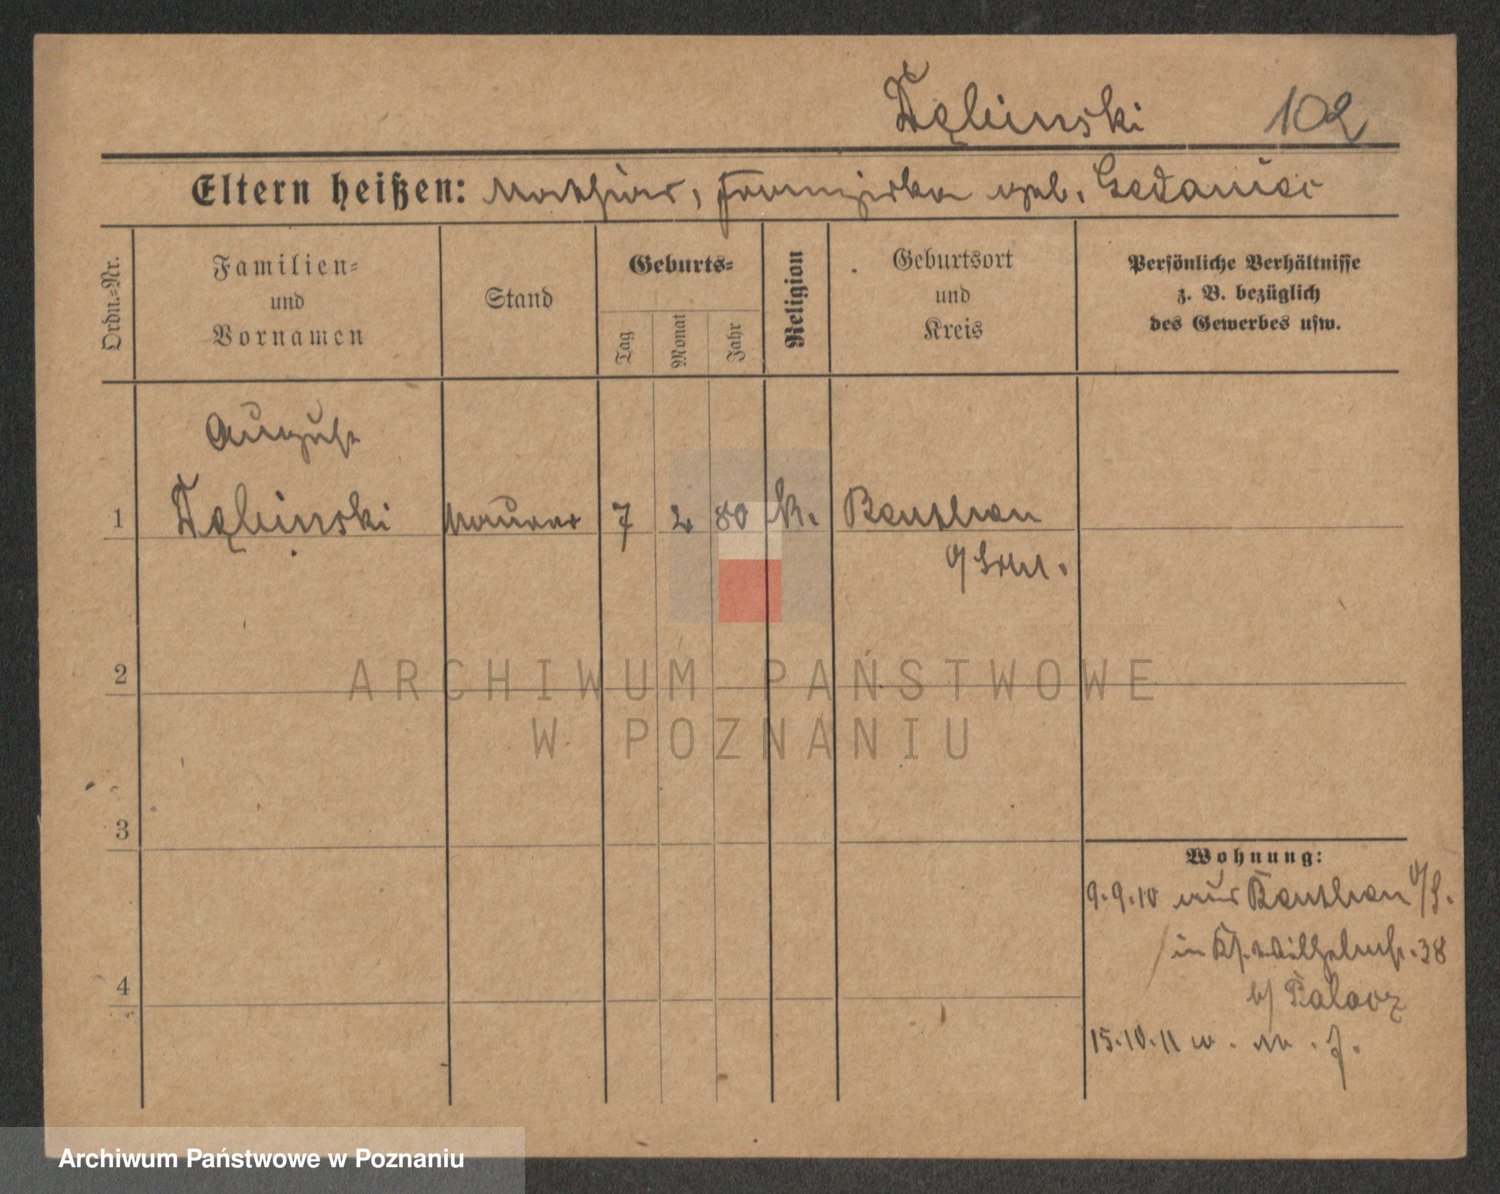 Dębinski 102
Eltern heißen: Mathias, Franziska geb. Gedaniec
Ordn.-Nr.
Familien-
und
Vornamen
Stand
Geburts-
Tag
Monat
Jahr
Religion
Geburtsort
und
Kreis
Persönliche Verhältnisse
z. B. bezüglich
des Gewerbes usw.
August
1 Dębinski Maurer 7 2 80 k. Beuthen
O/Schl.
2
ARCHIWUM PAŃSTWOWE
W POZNANIU
3
Wohnung:
9.9.10 aus Beuthen O/S.
in Kf. Wilhelmstr. 38
b/ Palacz
4
15.10.11 w.
Archiwum Państwowe w Poznaniu